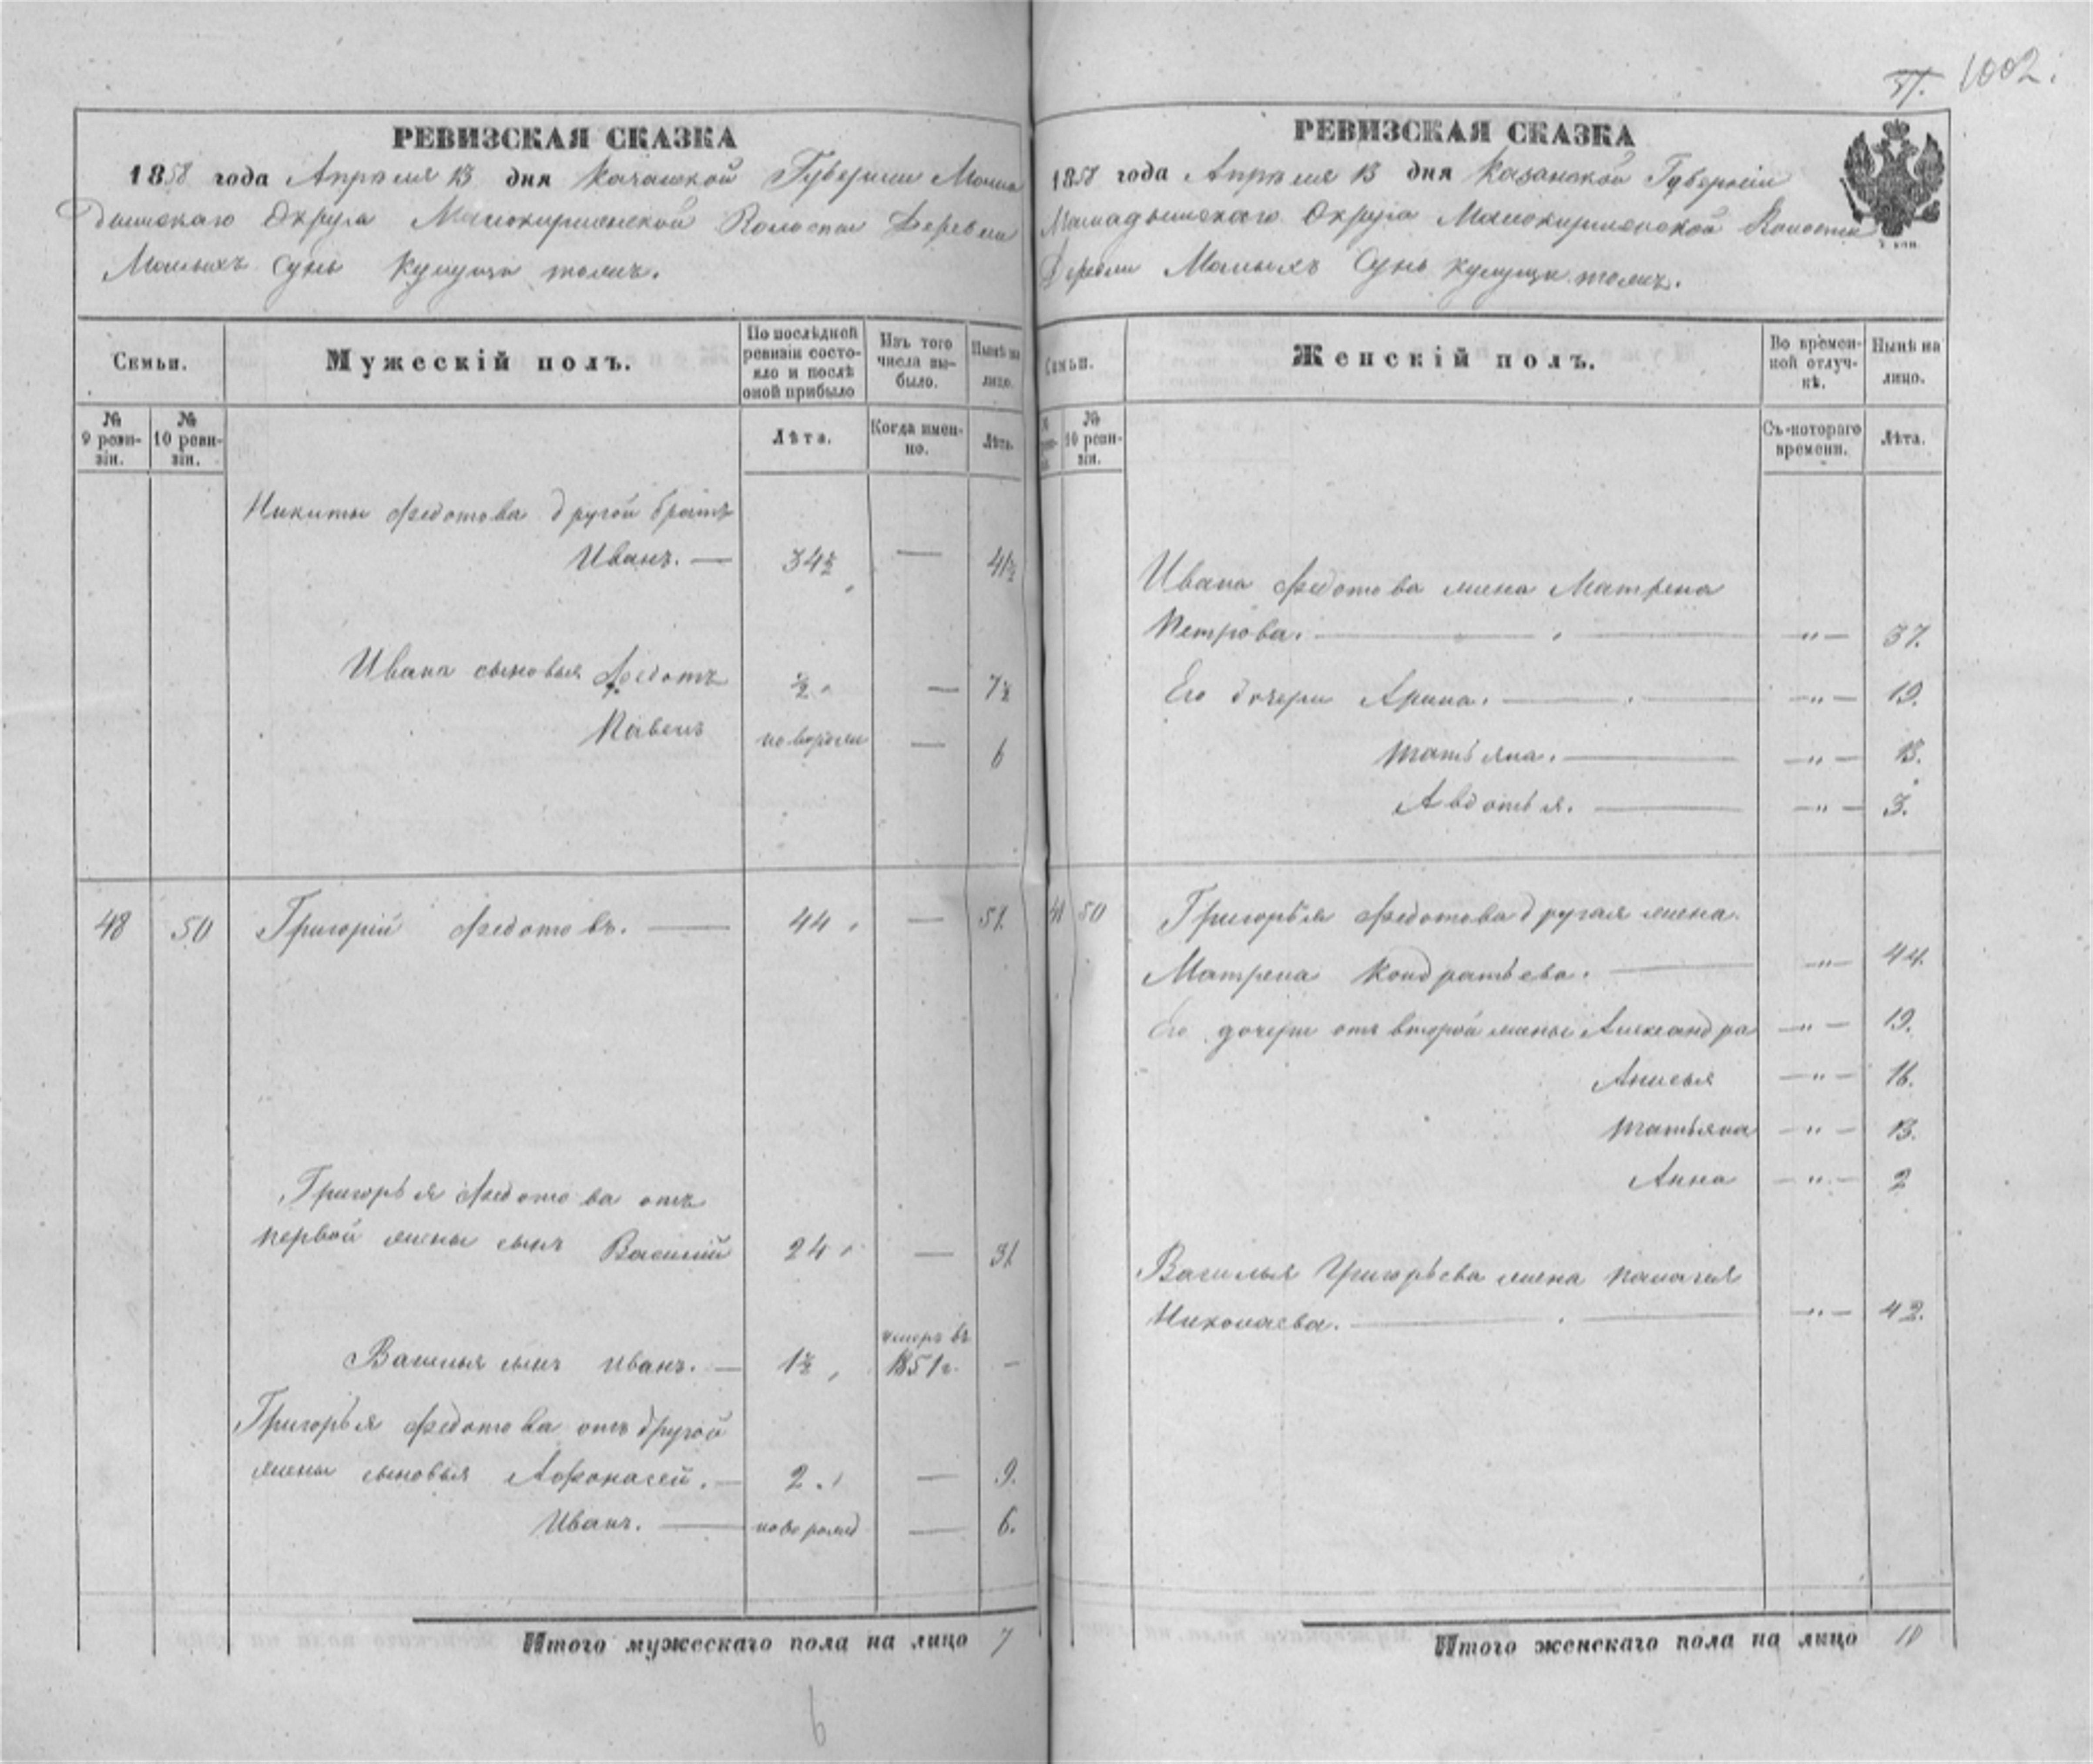 51. 1002.
РЕВИЗСКАЯ СКАЗКА
1858 года Апрѣля 13 дня Казанской Губерніи Мама
дышскаго Округа Малокирменской Волости Деревни
Малыхъ Сунь тожъ.
Семьи.
Мужескій полъ.
По послѣдней
ревизіи состо-
яло и послѣ
оной прибыло
Изъ того
числа вы-
было.
Нынѣ на
лицо.
№
9 реви-
зіи.
№
10 реви-
зіи.
Лѣта.
Когда имен-
но.
Лѣта.
Никиты Федотова другой братъ
Иванъ. — 34½ — 41½
Ивана сыновья Федотъ ½ — 7½
Павелъ новорожд — 6
48 50 Григорій Федотовъ. — 44 — 51.
Григорья Федотова отъ
первой жены сынъ Василій 24 — 31
Василья сынъ Иванъ. — 1½ умеръ въ 1851 г. —
Григорья Федотова отъ другой
жены сыновья Афонасей. — 2 — 9.
Иванъ. — новорожд — 6.
Итого мужескаго пола на лицо 7
6
РЕВИЗСКАЯ СКАЗКА
1858 года Апрѣля 13 дня Казанской Губерніи
Мамадышскаго Округа Малокирменской Волости
Деревни Малыхъ Сунь тожъ.
Семьи.
Женскій полъ.
Во времен-
ной отлуч-
кѣ.
Нынѣ на
лицо.
№
10 реви-
зіи.
Съ-котораго
времени.
Лѣта.
Ивана Федотова жена Матрена
Петрова. — " — 37.
Его дочери Арина. — " — 19.
Татьяна. — " — 13.
Авдотья. — " — 3.
50 Григорья Федотова другая жена
Матрена Кондратьева. — " — 44.
Его дочери отъ второй жены Александра — " — 19.
Анисья — " — 16.
Татьяна — " — 13.
Анна — " — 2
Василья Григорьева жена Палагея
Николаева. — " — 42.
Итого женскаго пола на лицо 10